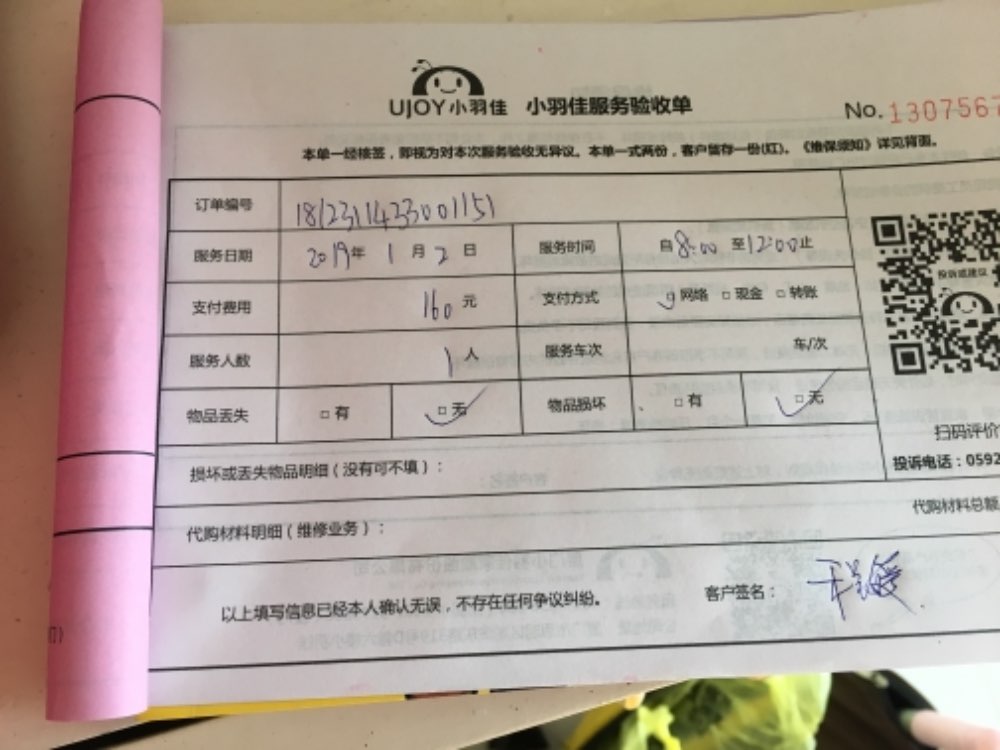 UJOY小羽佳 小羽佳服务验收单 No.1307567
本单一经核签，即视为对本次服务验收无异议。本单一式两份，客户留存一份(红)。《维保须知》详见背面。
订单编号 1812311433001151
服务日期 2019年 1月 2日 服务时间 自8:00至12:00止
投诉或建议
支付费用 160元 支付方式 网络 □现金 □转账
服务人数 1人 服务车次 车/次
物品丢失 □有 □无 物品损坏 □有 □无
扫码评价
损坏或丢失物品明细（没有可不填）： 投诉电话：0592
代购材料明细（维修业务）： 代购材料总额
以上填写信息已经本人确认无误，不存在任何争议纠纷。 客户签名：